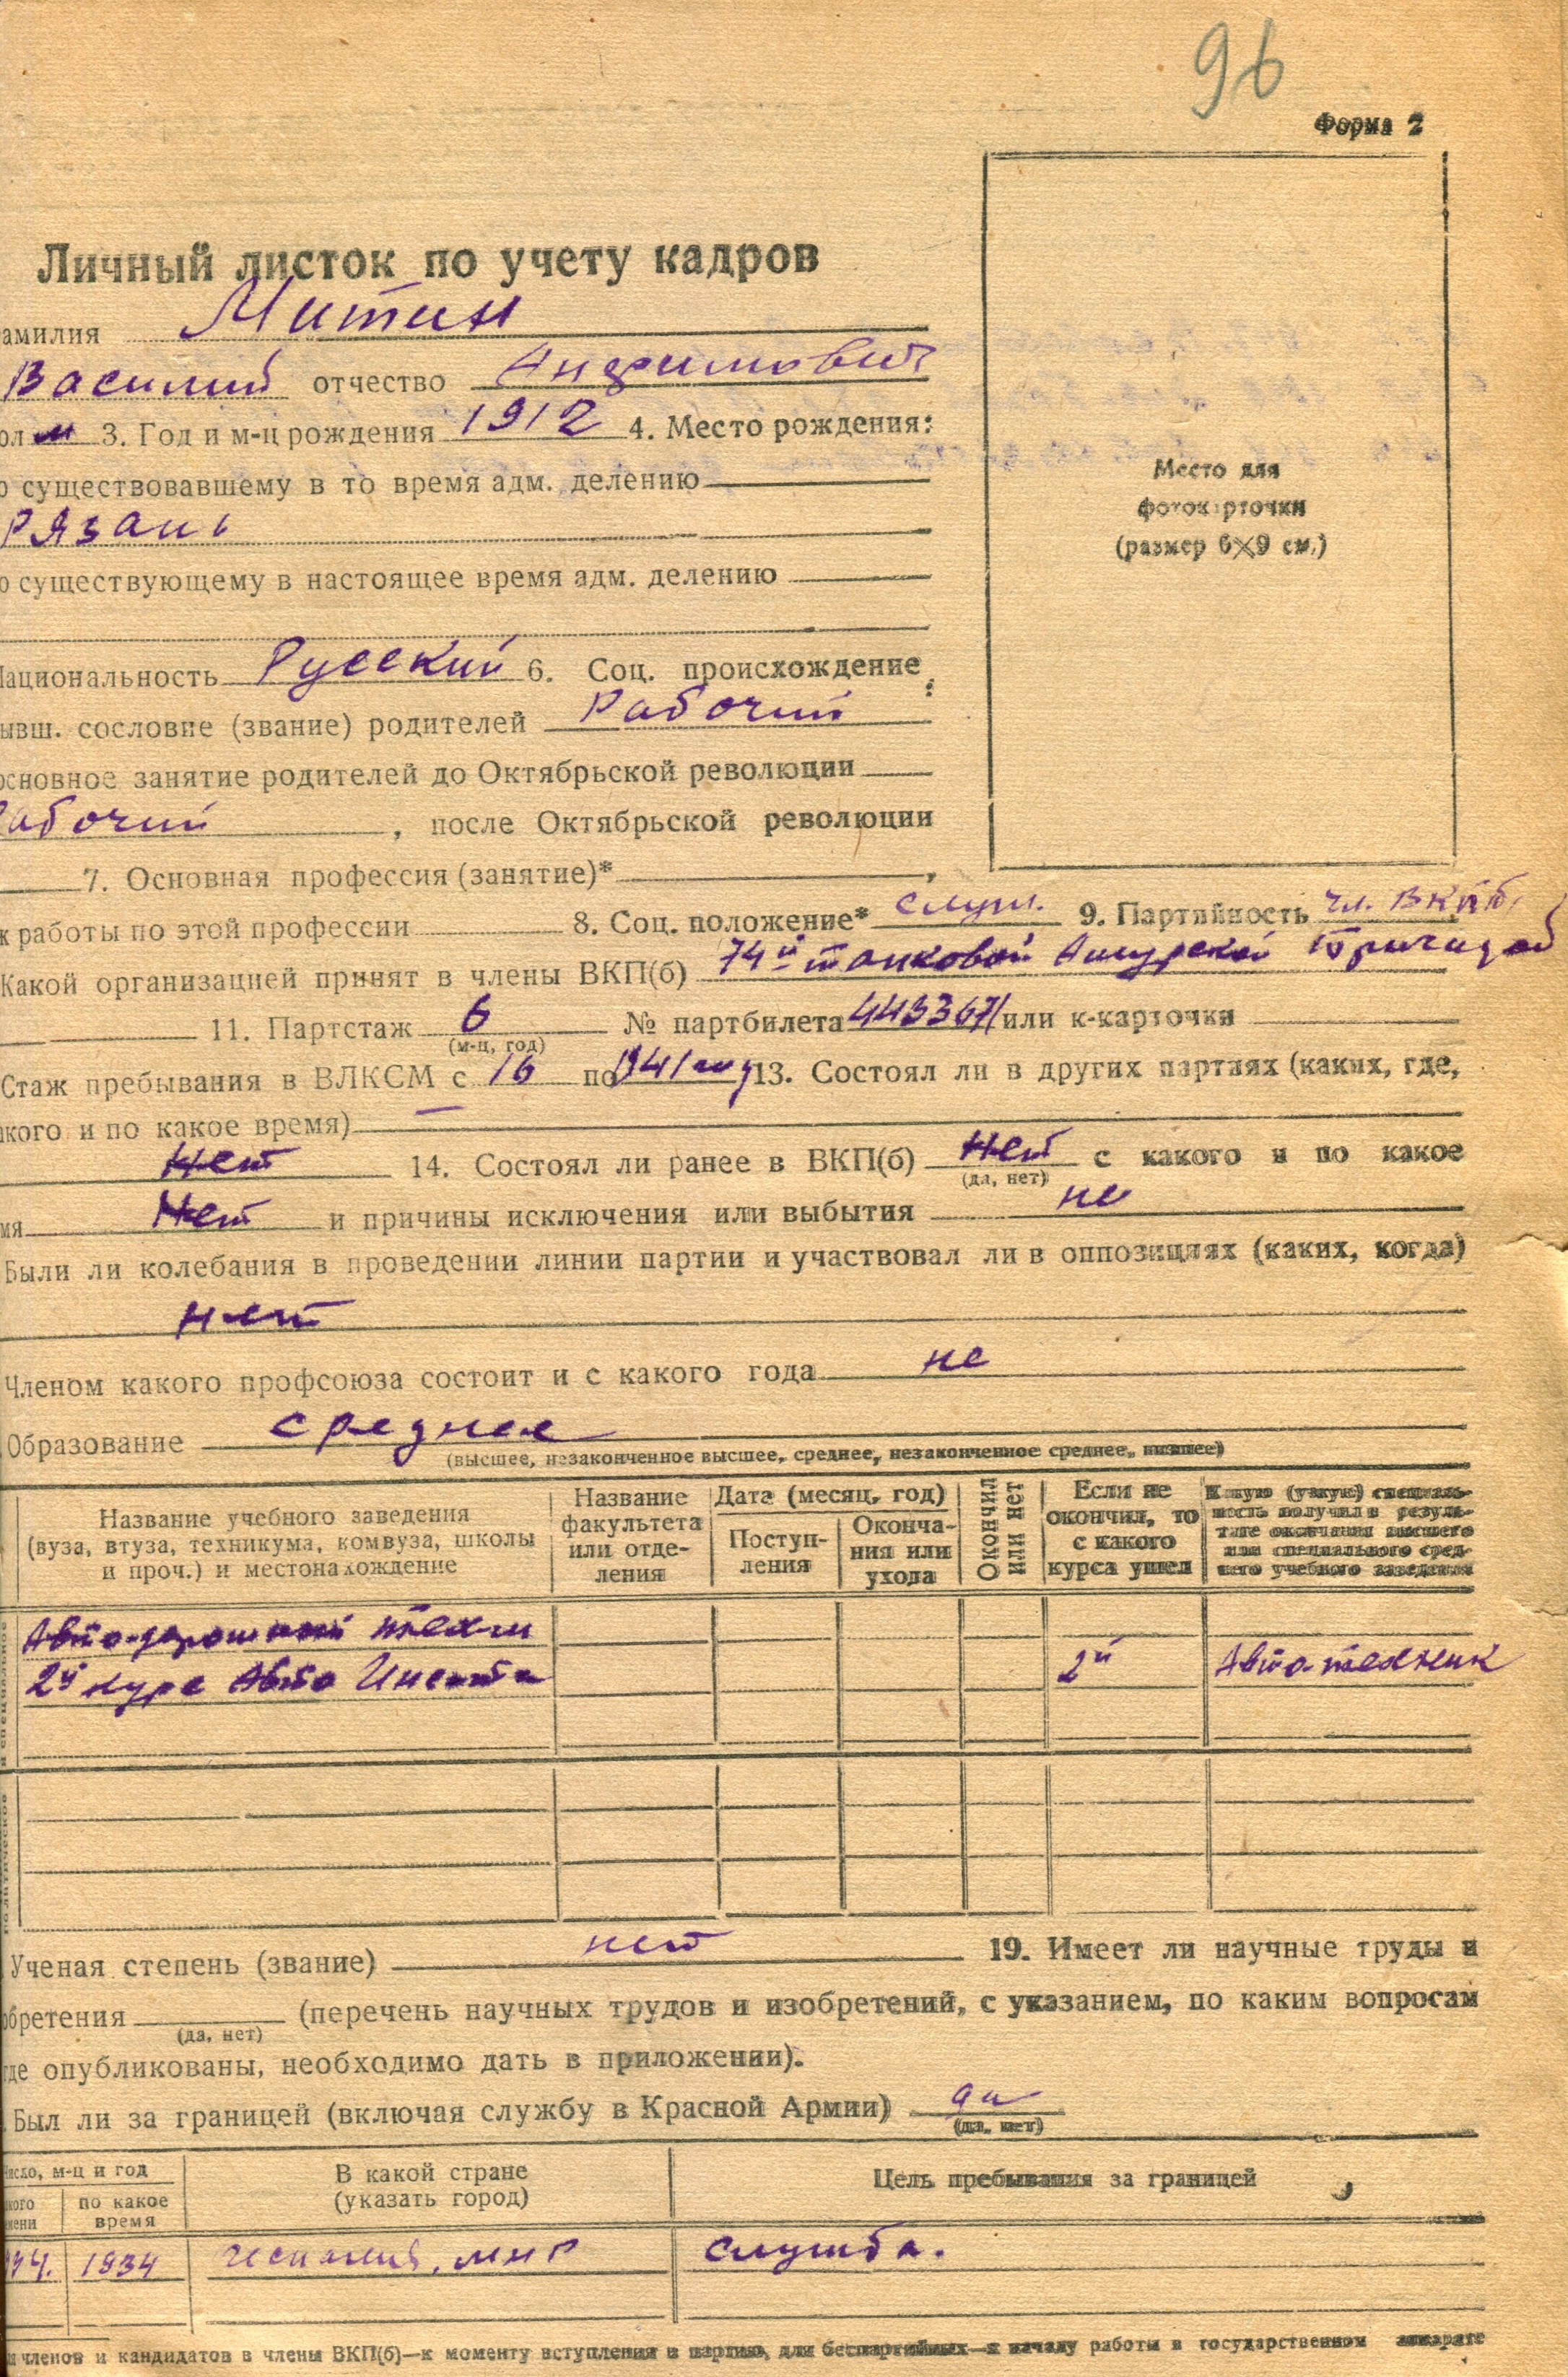 96
Форма 2
Личный листок по учету кадров
амилия Митин
Василий отчество Анфимович
ол м 3. Год и м-ц рождения 1912 4. Место рождения:
о существовавшему в то время адм. делению
Рязань
о существующему в настоящее время адм. делению
Место для
фотокарточки
(размер 6×9 см.)
Национальность Русский 6. Соц. происхождение:
ывш. сословие (звание) родителей Рабочий
основное занятие родителей до Октябрьской революции
Рабочий, после Октябрьской революции
7. Основная профессия (занятие)*,
ж работы по этой профессии 8. Соц. положение* служ. 9. Партийность чл. ВКПб.
Какой организацией принят в члены ВКП(б) 74й танковой Амурской бригадой
11. Партстаж 6 № партбилета 4433671 или к-карточки
(м-ц, год)
Стаж пребывания в ВЛКСМ с 16 по 1941 год 13. Состоял ли в других партиях (каких, где,
акого и по какое время) —
Нет 14. Состоял ли ранее в ВКП(б) Нет с какого и по какое
(да, нет)
мя Нет и причины исключения или выбытия не
Были ли колебания в проведении линии партии и участвовал ли в оппозициях (каких, когда)
нет
Членом какого профсоюза состоит и с какого года не
Образование среднее
(высшее, незаконченное высшее, среднее, незаконченное среднее, низшее)
Название учебного заведения
(вуза, втуза, техникума, комвуза, школы
и проч.) и местонахождение
Название
факультета
или отде-
ления
Дата (месяц, год)
Поступ-
ления
Оконча-
ния или
ухода
Окончил
или нет
Если не
окончил, то
с какого
курса ушел
Какую (узкую) специаль-
ность получил в резуль-
тате окончания высшего
или специального сред-
него учебного заведения
и специальное
Авто-дорожный техн
2й курс Авто Инст-та 2й Авто-техник
политическое
Ученая степень (звание) нет 19. Имеет ли научные труды и
обретения (перечень научных трудов и изобретений, с указанием, по каким вопросам
(да, нет)
где опубликованы, необходимо дать в приложении).
Был ли за границей (включая службу в Красной Армии) да
(да, нет)
Число, м-ц и год
кого
мени
по какое
время
В какой стране
(указать город)
Цель пребывания за границей
934. 1934 Испания, МНР служба.
членов и кандидатов в члены ВКП(б)—к моменту вступления в партию, для беспартийных—к началу работы в государственном аппарате